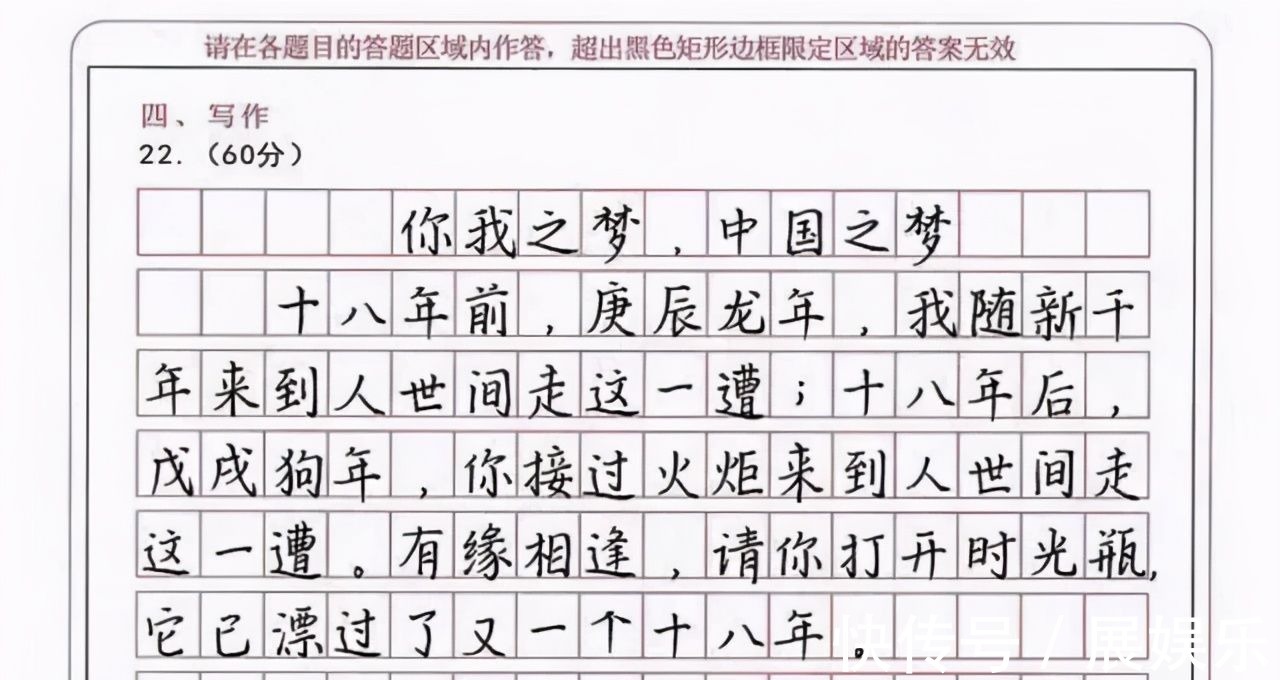 请在各题目的答题区域内作答，超出黑色矩形边框限定区域的答案无效
四、写作
22.（60分）
你我之梦，中国之梦
十八年前，庚辰龙年，我随新千
年来到人世间走这一遭；十八年后，
戊戌狗年，你接过火炬来到人世间走
这一遭。有缘相逢，请你打开时光瓶，
它已漂过了又一个十八年。
快传号/展娱乐